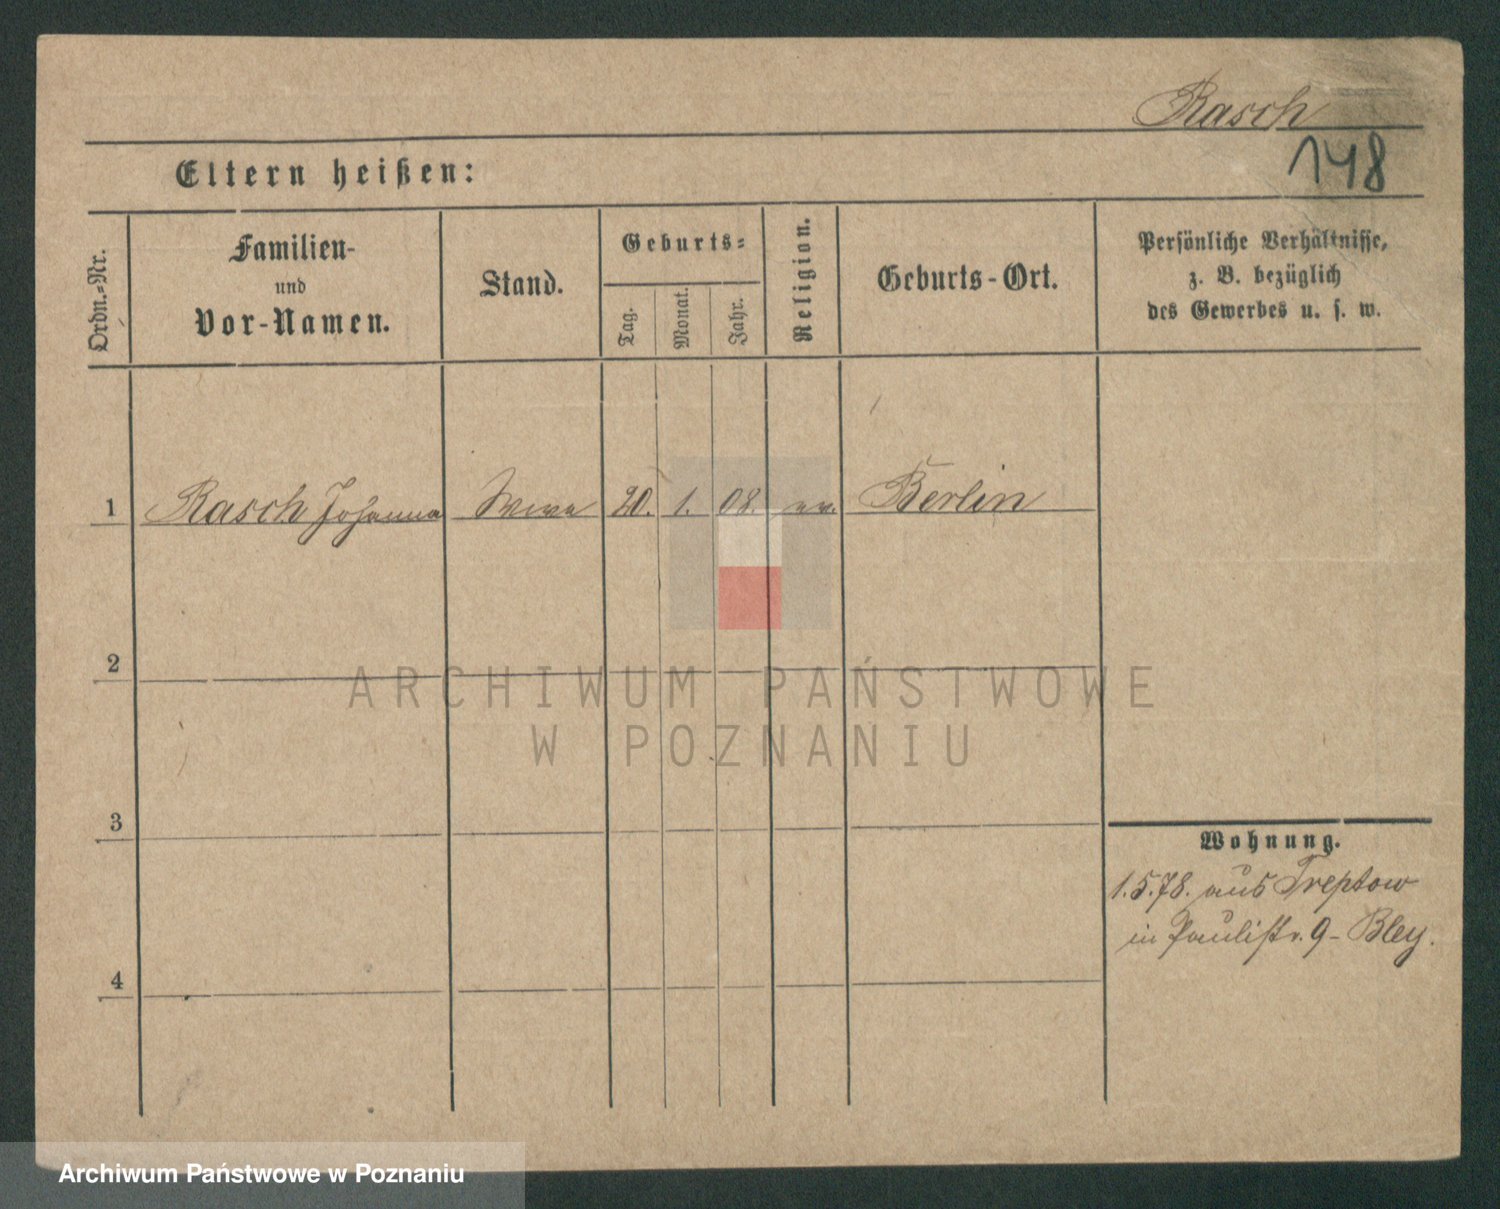 Rasch
148
Eltern heißen:
Ordn.-Nr.
Familien-
und
Vor-Namen.
Stand.
Geburts-
Tag.
Monat.
Jahr.
Religion.
Geburts-Ort.
Persönliche Verhältnisse,
z. B. bezüglich
des Gewerbes u. s. w.
1 Rasch Johanna Wwe 20. 1. 08. ev. Berlin
2
ARCHIWUM PAŃSTWOWE
W POZNANIU
3
Wohnung.
1.5.78. aus Treptow
in Paulistr. 9 - Bley.
4
Archiwum Państwowe w Poznaniu